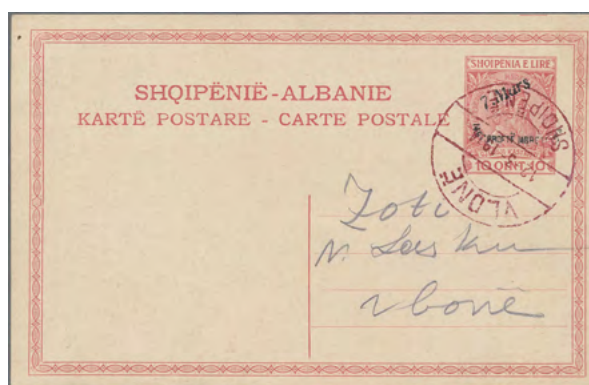 SHQIPËNIË-ALBANIE
KARTË POSTARE - CARTE POSTALE
SHQIPËNIA E LIRE
7 Mars
10 QINT. 10
VLONË
SHQIPËNIË
Zoti
N. Lasku
Vlonë